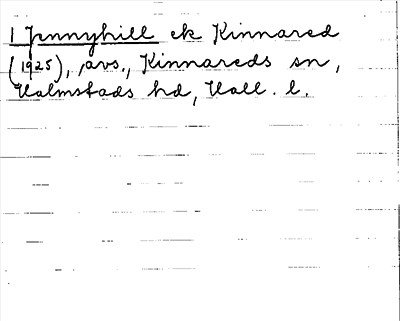 1 Jennyhill ek Kinnared
(1925), avs., Kinnareds sn,
Halmstads hd, Hall. l.